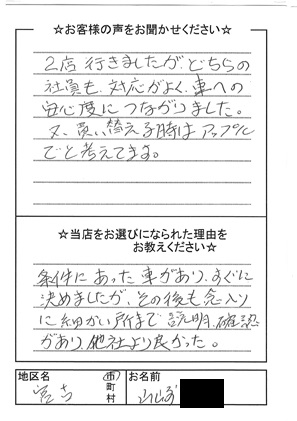 ☆お客様の声をお聞かせください☆
2店行きましたがどちらの
社員も、対応がよく、車への
安心度につながりました。
又、買い替える時はアップルに
でと考えてます。
☆当店をお選びになられた理由を
お教えください☆
条件にあった車があり、すぐに
決めましたが、その後も念入り
に細かい所まで説明、確認
があり、他社より良かった。
地区名
市
町
村
お名前
宮古
山崎